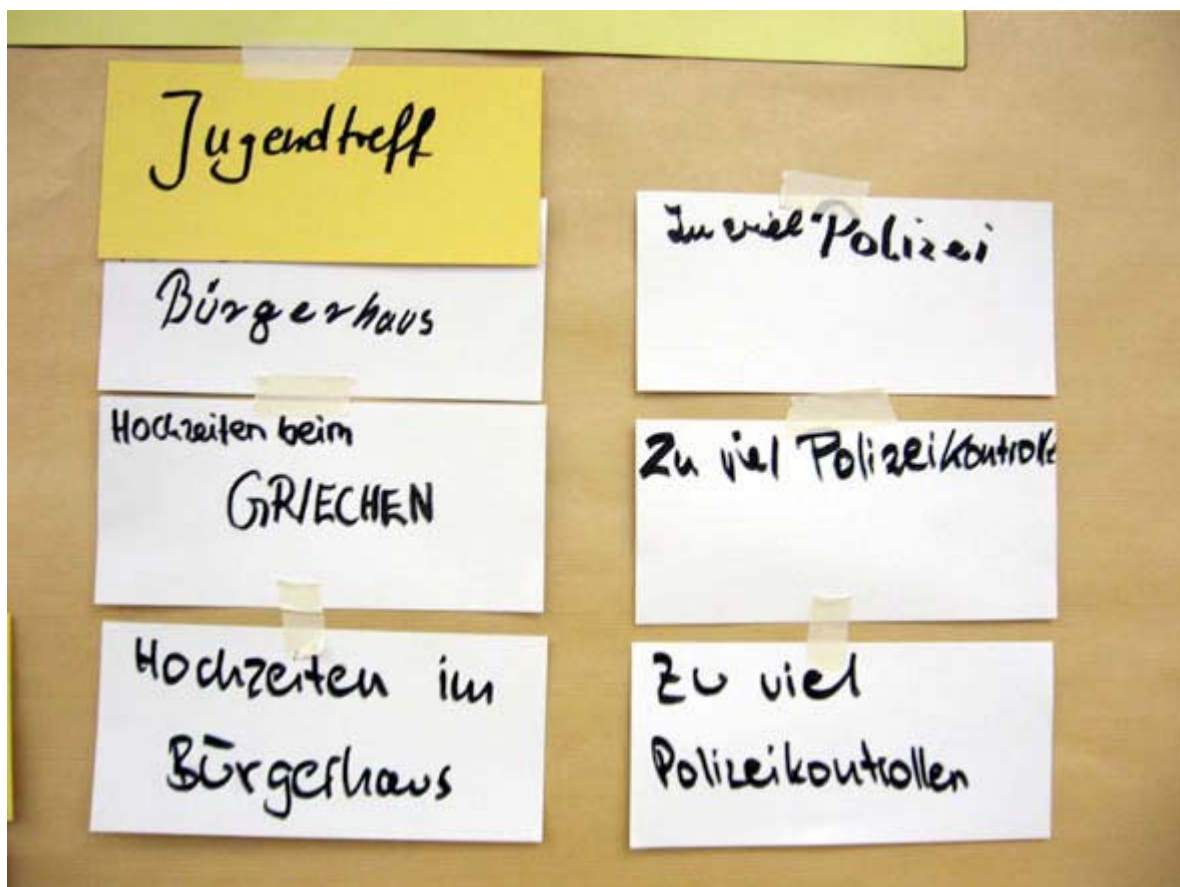 Jugendtreff
Bürgerhaus
Hochzeiten beim
GRIECHEN
Hochzeiten im
Bürgerhaus
Zu viel Polizei
Zu viel Polizeikontrolle
Zu viel
Polizeikontrollen